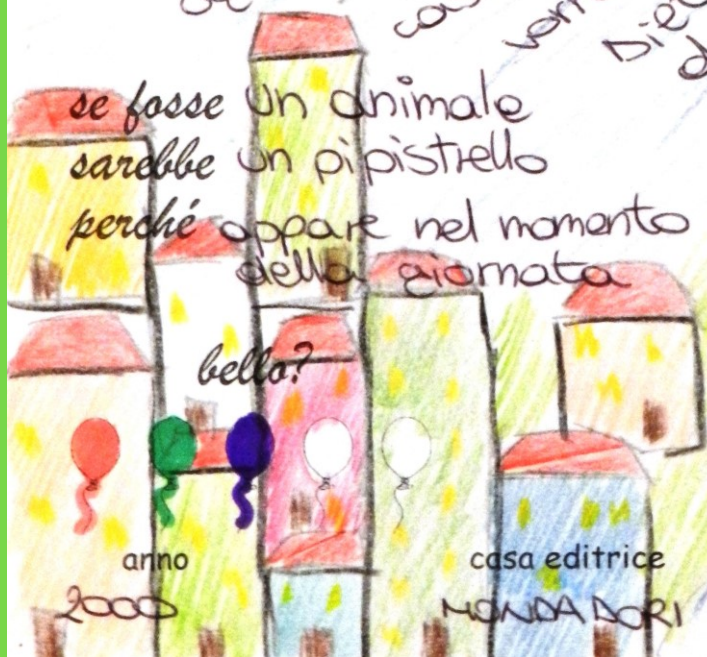 se fosse un animale
sarebbe un pipistrello
perché appare nel momento
della giornata
bello?
anno
casa editrice
2000
MONDADORI